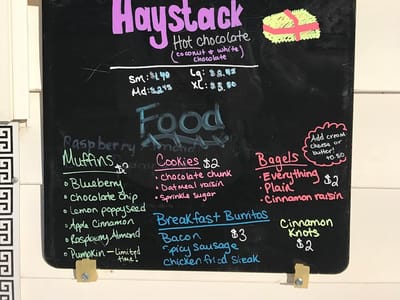 Haystack
Hot chocolate
(coconut + white
chocolate)
Sm: Lg:
Md: XL:
Food
Raspberry
Muffins
• Blueberry
• chocolate chip
• Lemon poppyseed
• Apple Cinnamon
• Raspberry Almond
• Pumpkin - limited
time!
Cookies $2
• chocolate chunk
• Oatmeal raisin
• Sprinkle sugar
Bagels
• Everything
• Plain $2
• Cinnamon raisin
Add cream
cheese or
butter!
+0.50
Breakfast Burritos
Bacon $3
Spicy sausage
chicken fried steak
Cinnamon
Knots
$2